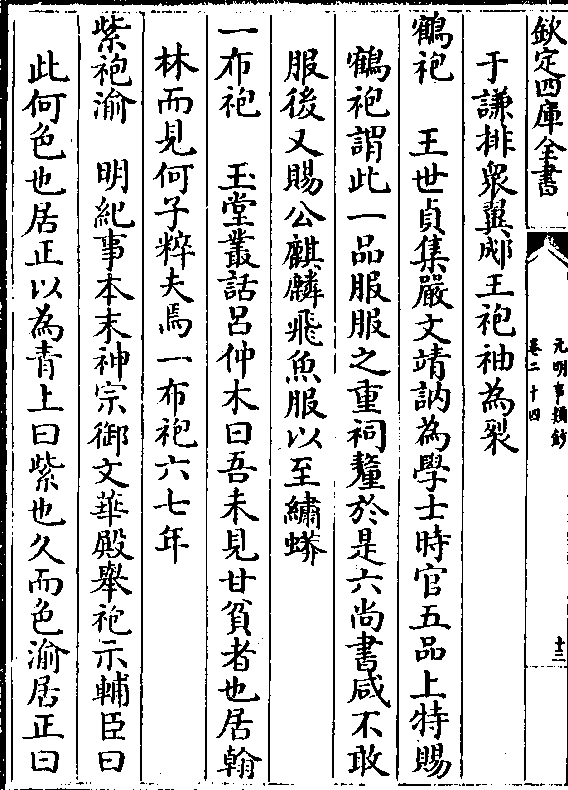 欽定四庫全書
元明事類鈔
卷二十四
十三
于謙排衆翼郕王袍袖為裂
鶴袍　王世貞集嚴文靖訥為學士時官五品上特賜
鶴袍謂此一品服服之重祠釐於是六尚書咸不敢
服後又賜公麒麟飛魚服以至繡蟒
一布袍　玉堂叢話呂仲木曰吾未見甘貧者也居翰
林而見何子粹夫焉一布袍六七年
紫袍渝　明紀事本末神宗御文華殿舉袍示輔臣曰
此何色也居正以為青上曰紫也久而色渝居正曰